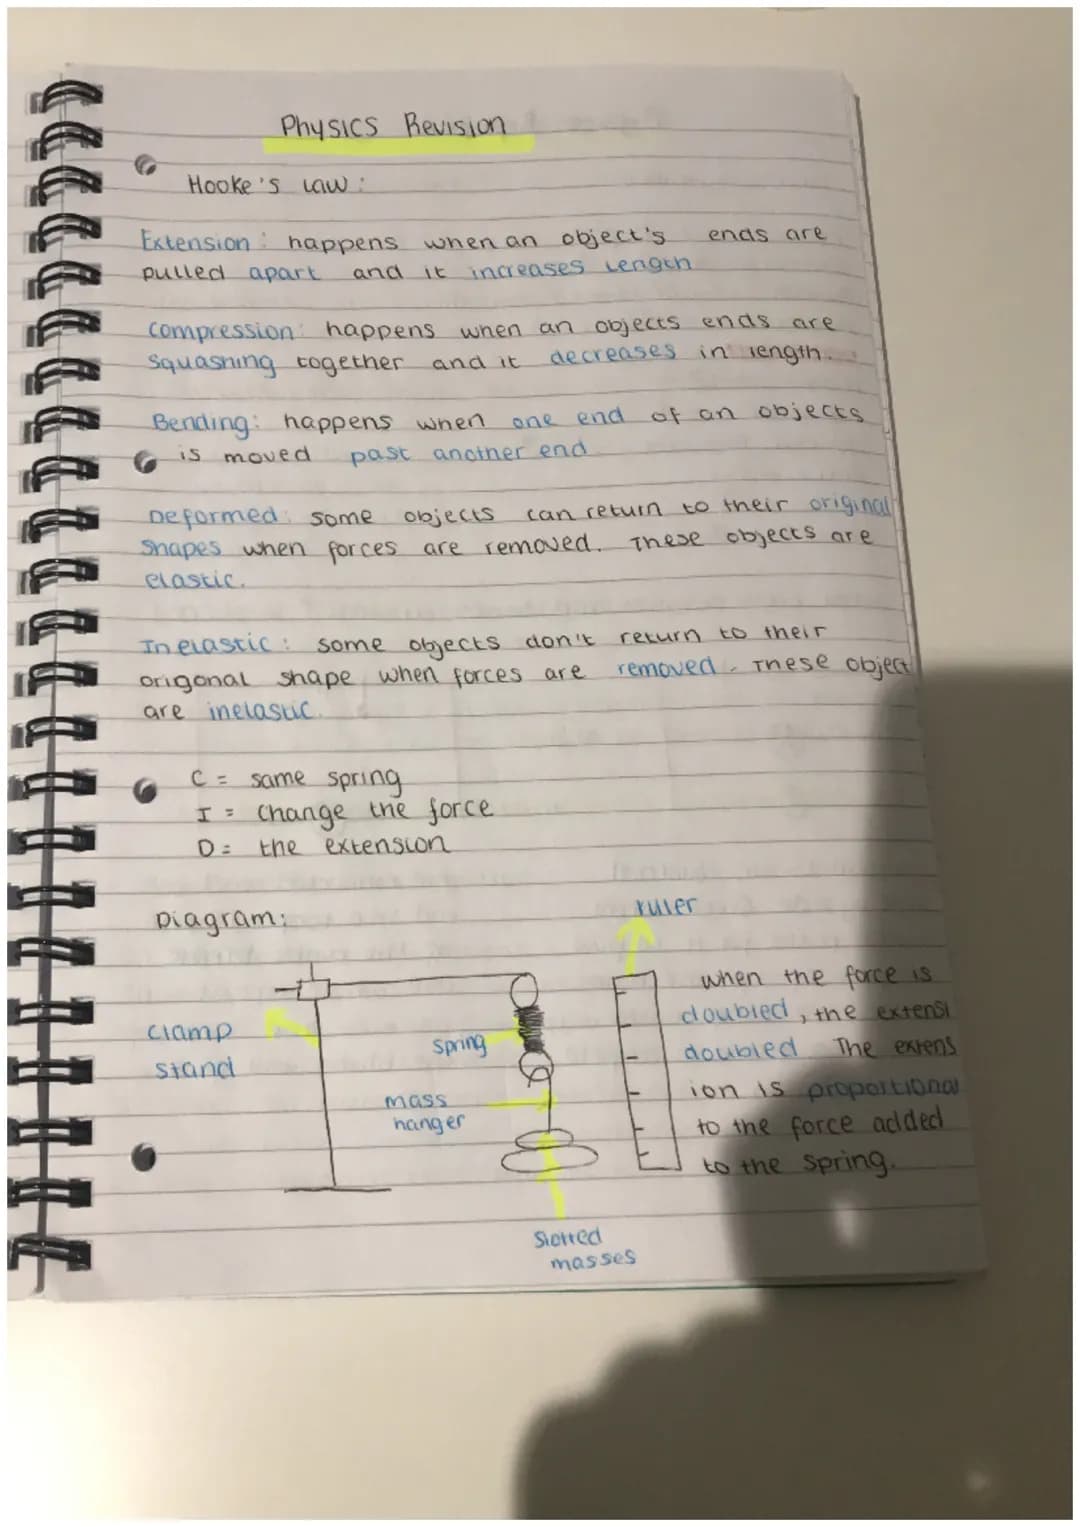 Physics Revision
Hooke's Law:
Extension: happens when an object's ends are
pulled apart and it increases Length
Compression: happens when an objects ends are
squashing together and it decreases in length.
Bending: happens when one end of an objects
is moved past another end
Deformed: some objects can return to their original
shapes when forces are removed. These objects are
elastic.
Inelastic: some objects don't return to their
origonal shape when forces are removed. These object
are inelastic.
C = same spring
I = Change the force
D = the extension
Diagram:
ruler
clamp
stand
spring
mass
hanger
Slotted
masses
when the force is
doubled, the extensi
doubled The extens
ion is proportional
to the force added
to the spring.